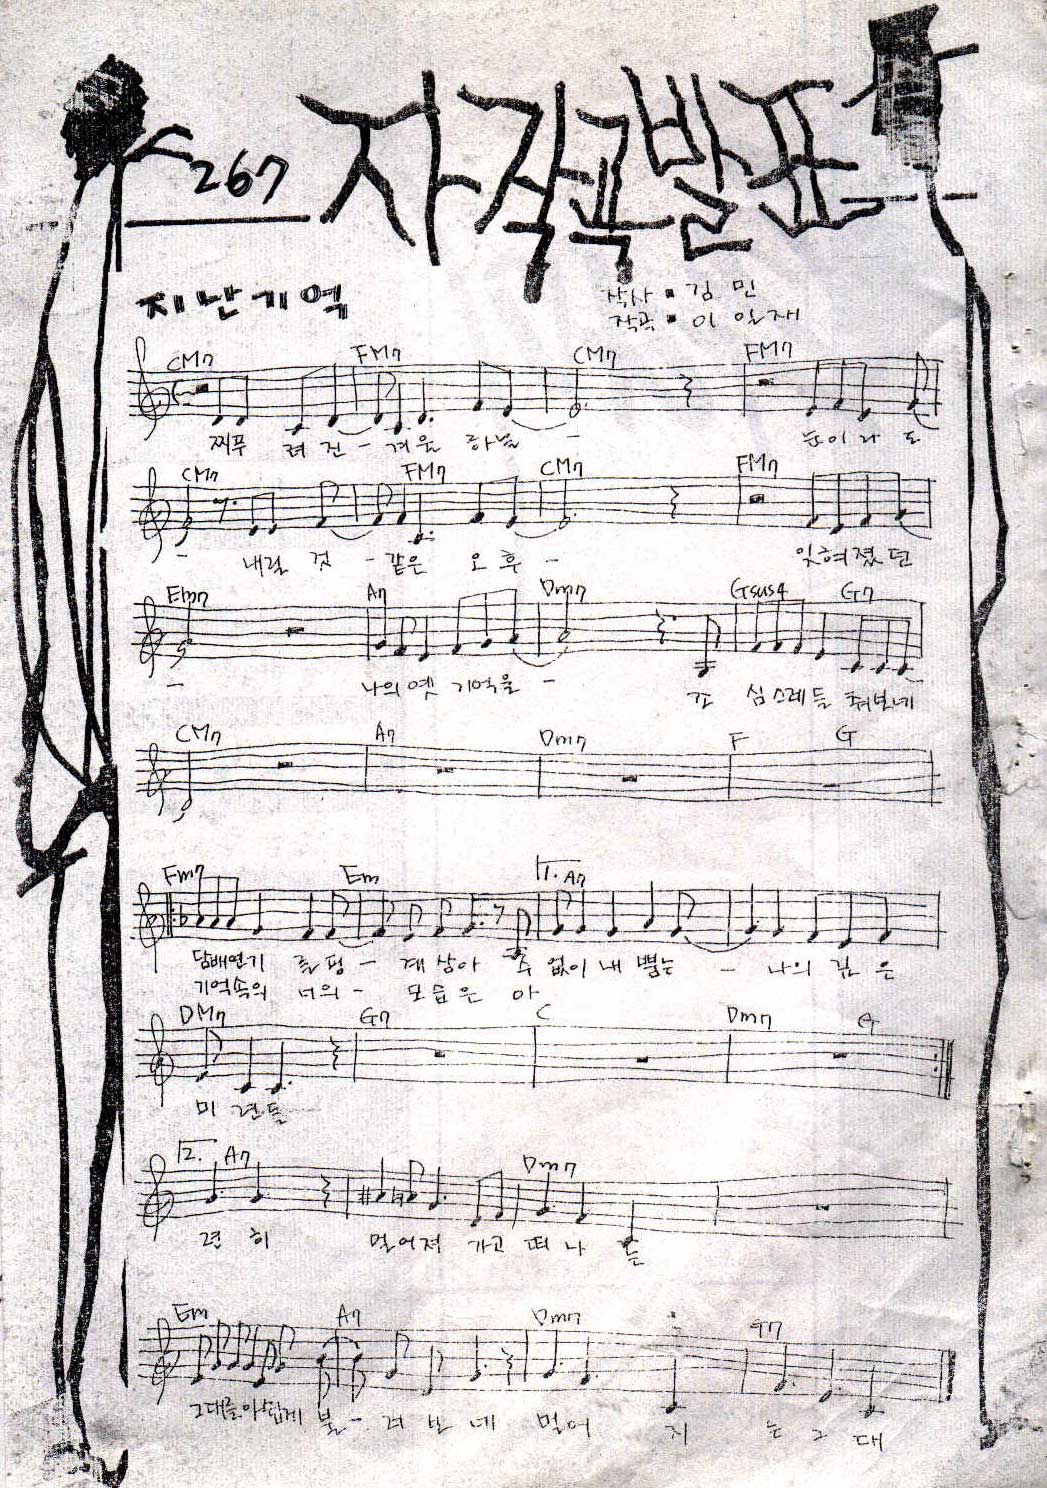 267 자작곡발표
지난기억
작사 : 김 민
작곡 : 이일재
CM7 FM7 CM7 FM7
찌푸 려 진 - 겨울 하늘 - 눈이라 도
CM7 FM7 CM7 FM7
- 내릴 것 - 같은 오후 - 잊혀졌던
Em7 A7 Dm7 Gsus4 G7
- 나의옛 기억을 - 조심스레들춰보네
CM7 A7 Dm7 F G
Fm7 Em 1. A7
담배연기 를핑 - 계삼아 수 없이 내 뿜는 - 나의 깊 은
기억속의 너의 - 모습은 아
DM7 G7 C Dm7 G
미 련들
2. A7 Dm7
련 히 멀어져 가고 떠나는
Em A7 Dm7 G7
그대를아쉽게 불 - 러보네 멀어 지 는 그 대